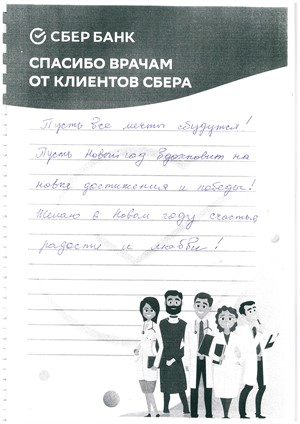 СБЕР БАНК
СПАСИБО ВРАЧАМ
ОТ КЛИЕНТОВ СБЕРА
Пусть все мечты сбудутся!
Пусть Новый год вдохновит на
новые достижения и победы!
Желаю в Новом году счастья
радости и любви!